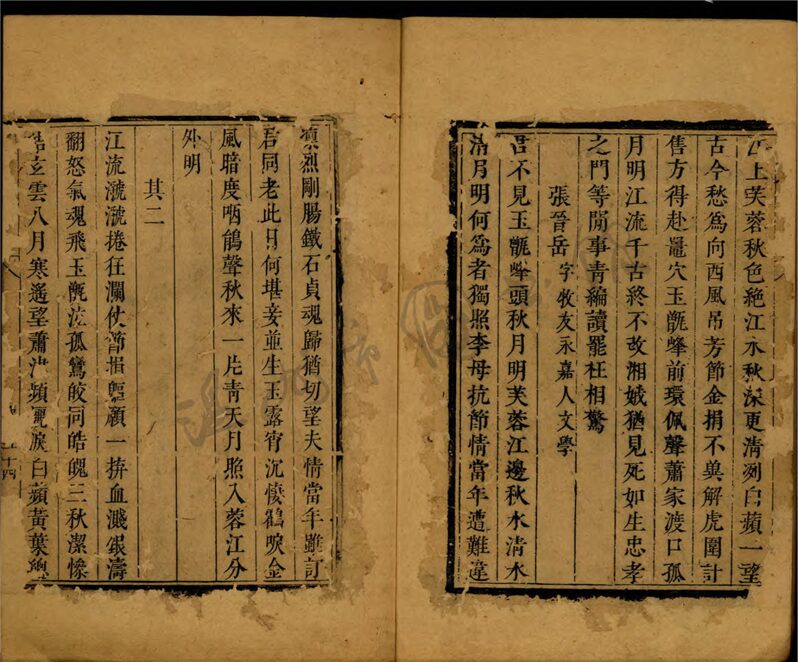 江上芙蓉秋色絕江水秋深更清冽白蘋一望
古今愁為向西風吊芳節金捐不異解虎圍計
售方得赴鼉穴玉甑峰前環佩聲蕭家渡口孤
月明江流千古終不改湘娥猶見死如生忠孝
之門等閒事青編讀罷枉相驚
張晉岳字牧友永嘉人文學
君不見玉甑峰頭秋月明芙蓉江邊秋水清水
清月明何為者獨照李母抗節情當年遭難違
烈剛腸鐵石貞魂歸猶切望夫情當年雖訂
君同老此日何堪妾並生玉露宵沉悽鶴唳金
風暗度咽鵑聲秋來一片青天月照入蓉江分
外明
其二
江流漉漉捲狂瀾仗節捐軀顧一拚血濺浪濤
翻怒氣魂飛玉甑泣孤鸞皎同皓魄三秋潔慘
玄雲八月寒遙望蕭江頻灑淚白蘋黃葉總
十四